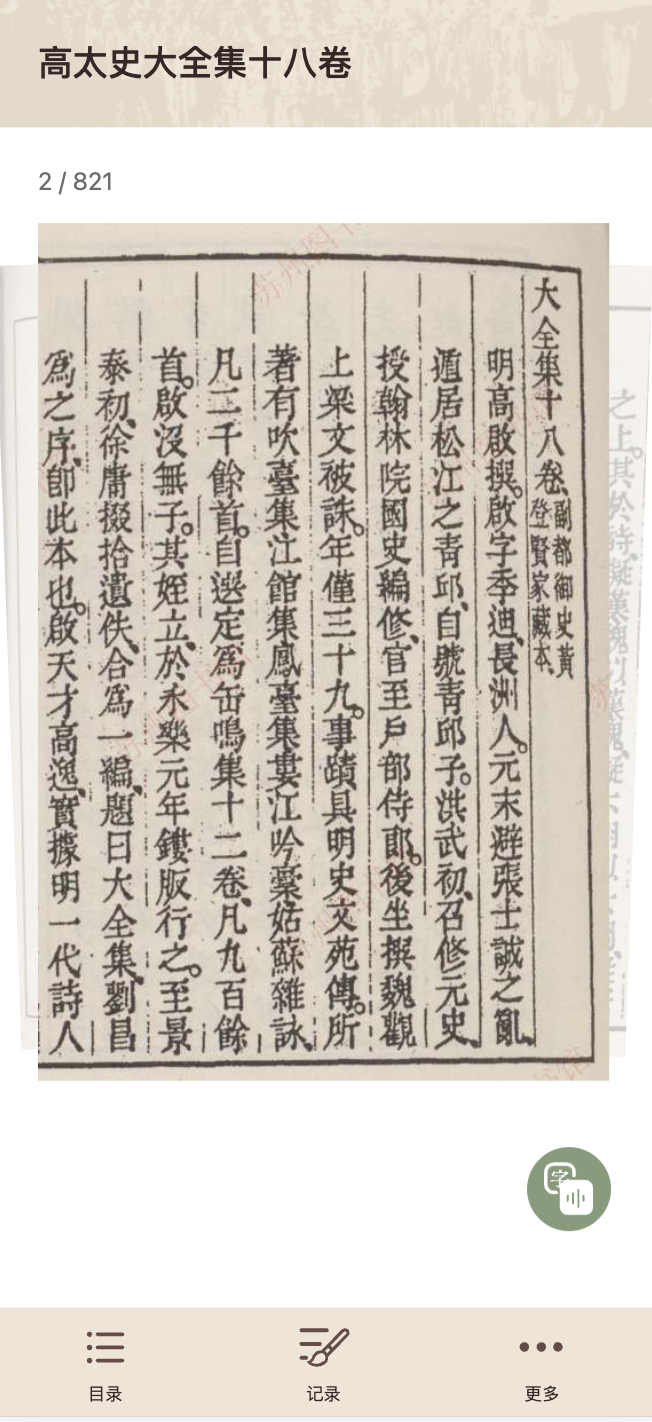 高太史大全集十八卷
2 / 821
大全集十八卷、副都御史黃登賢家藏本
明高啟撰。啟字季迪、長洲人。元末避張士誠之亂、
遁居松江之靑邱、自號靑邱子。洪武初、召修元史、
授翰林院國史編修、官至戶部侍郎。後坐撰魏觀
上梁文被誅。年僅三十九。事蹟具明史文苑傳。所
著有吹臺集江館集鳳臺集婁江吟槀姑蘇雜詠、
凡二千餘首。自選定爲缶鳴集十二卷、凡九百餘
首。啟沒無子。其姪立、於永樂元年鏤版行之。至景
泰初、徐庸掇拾遺佚、合爲一編、題曰大全集、劉昌
爲之序、卽此本也。啟天才高逸、實據明一代詩人
之上。其於詩、擬漢魏似漢魏、擬
字
目录
记录
更多